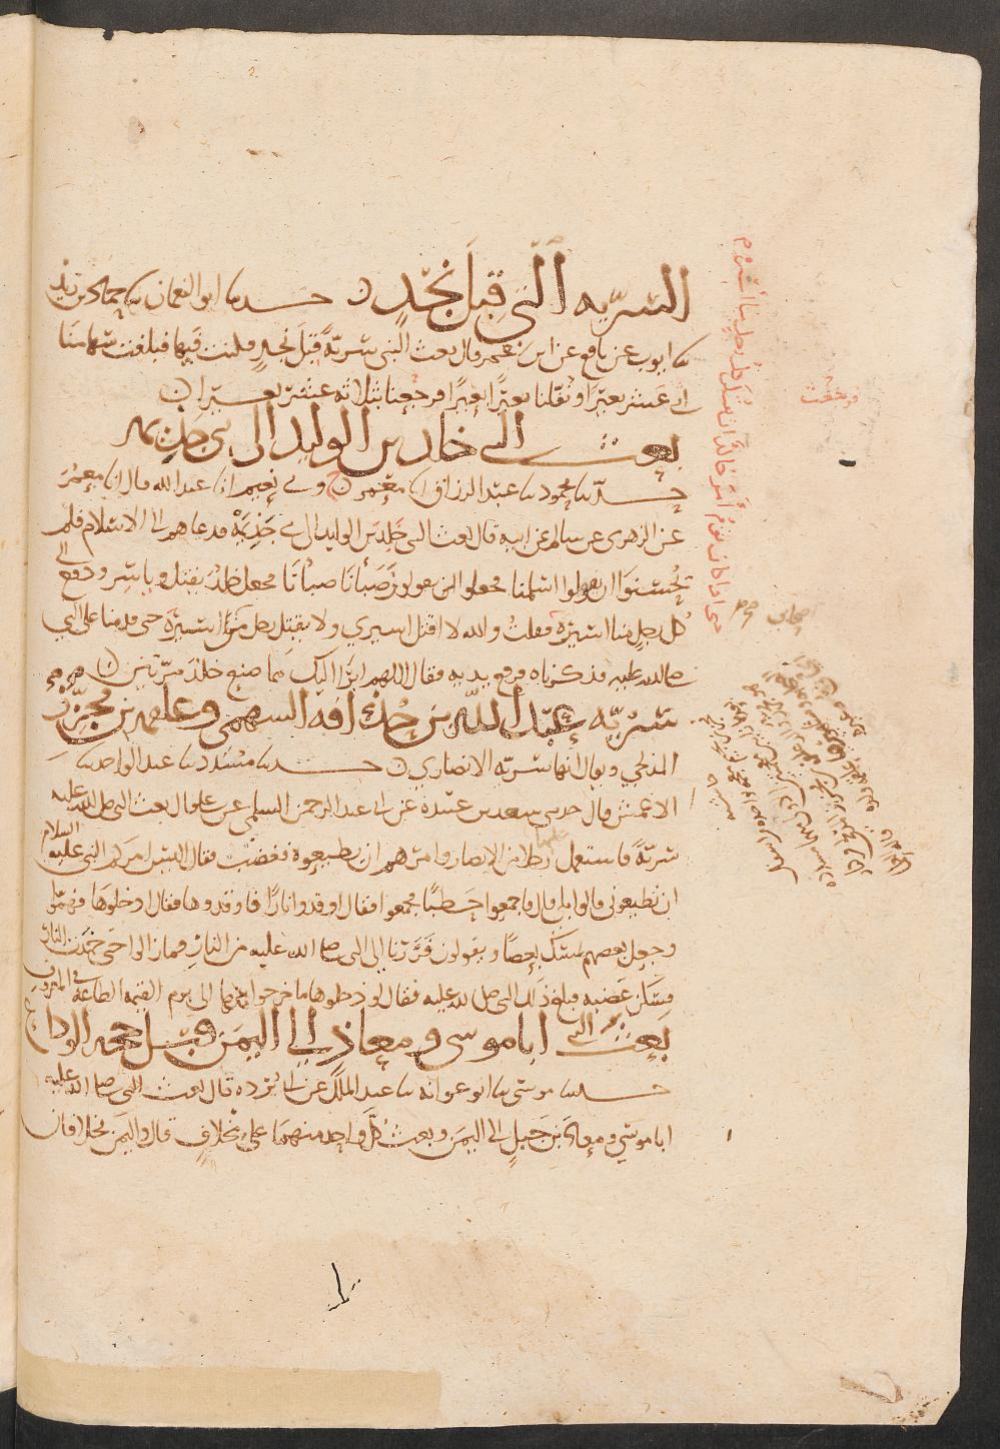 السرية التي قبل نجد حدثنا ابو النعمان ثنا حماد بن زيد
ثنا ايوب عن نافع عن ابن عمر قال بعث النبي سرية قبل نجد فكنت فيها فبلغت سهامنا
اثني عشر بعيرا ونفلنا بعيرا بعيرا فرجعنا بثلاثة عشر بعيرا
بعث النبي خالد بن الوليد الى بني جذيمة
حدثنا محمود ثنا عبد الرزاق انا معمر ح وثني نعيم انا عبد الله قال انا معمر
عن الزهري عن سالم عن ابيه قال بعث النبي خلد بن الوليد الى بني جذيمة فدعاهم الى الاسلام فلم
يحسنوا ان يقولوا اسلمنا فجعلوا يقولون صبأنا صبأنا فجعل خلد يقتل وياسر ودفع الى
كل رجل منا اسيره فقلت والله لا اقتل اسيري ولا يقتل رجل من اسيره حتى قدمنا على النبي
صلى الله عليه فذكرناه فرفع يديه فقال اللهم ابرا اليك مما صنع خلد مرتين
سرية عبد الله بن حذافة السهمي وعلقمة بن مجزز
المدلجي ويقال انها سرية الانصاري حدثنا مسدد ثنا عبد الواحد ثنا
الاعمش قال حدثني سعد بن عبيدة عن ابي عبد الرحمن السلمي عن علي قال بعث النبي صلى الله عليه
سرية فاستعمل رجلا من الانصار وامرهم ان يطيعوه فغضب فقال اليس امركم النبي عليه السلام
ان تطيعوني قالوا بلى قال فاجمعوا حطبا فجمعوا فقال اوقدوا نارا فاوقدوها فقال ادخلوها فهموا
وجعل بعضهم يمسك بعضا ويقولون فررنا الى النبي صلى الله عليه من النار فما زالوا حتى خمدت النار
فسكن غضبه فبلغ ذلك النبي صلى الله عليه فقال لو دخلوها ما خرجوا منها الى يوم القيمة الطاعة في المعروف
بعث النبي ابا موسى ومعاذ الى اليمن قبل حجة الوداع
حدثنا موسى ثنا ابو عوانة ثنا عبد الملك عن ابي بردة قال بعث النبي صلى الله عليه
ابا موسى ومعاذ بن جبل الى اليمن وبعث كل واحد منهما على مخلاف قال واليمن مخلافان
فرجعت
حتى اذا كان يوم امر خالد ان يقتل كل رجل منا اسيره
اصحابي